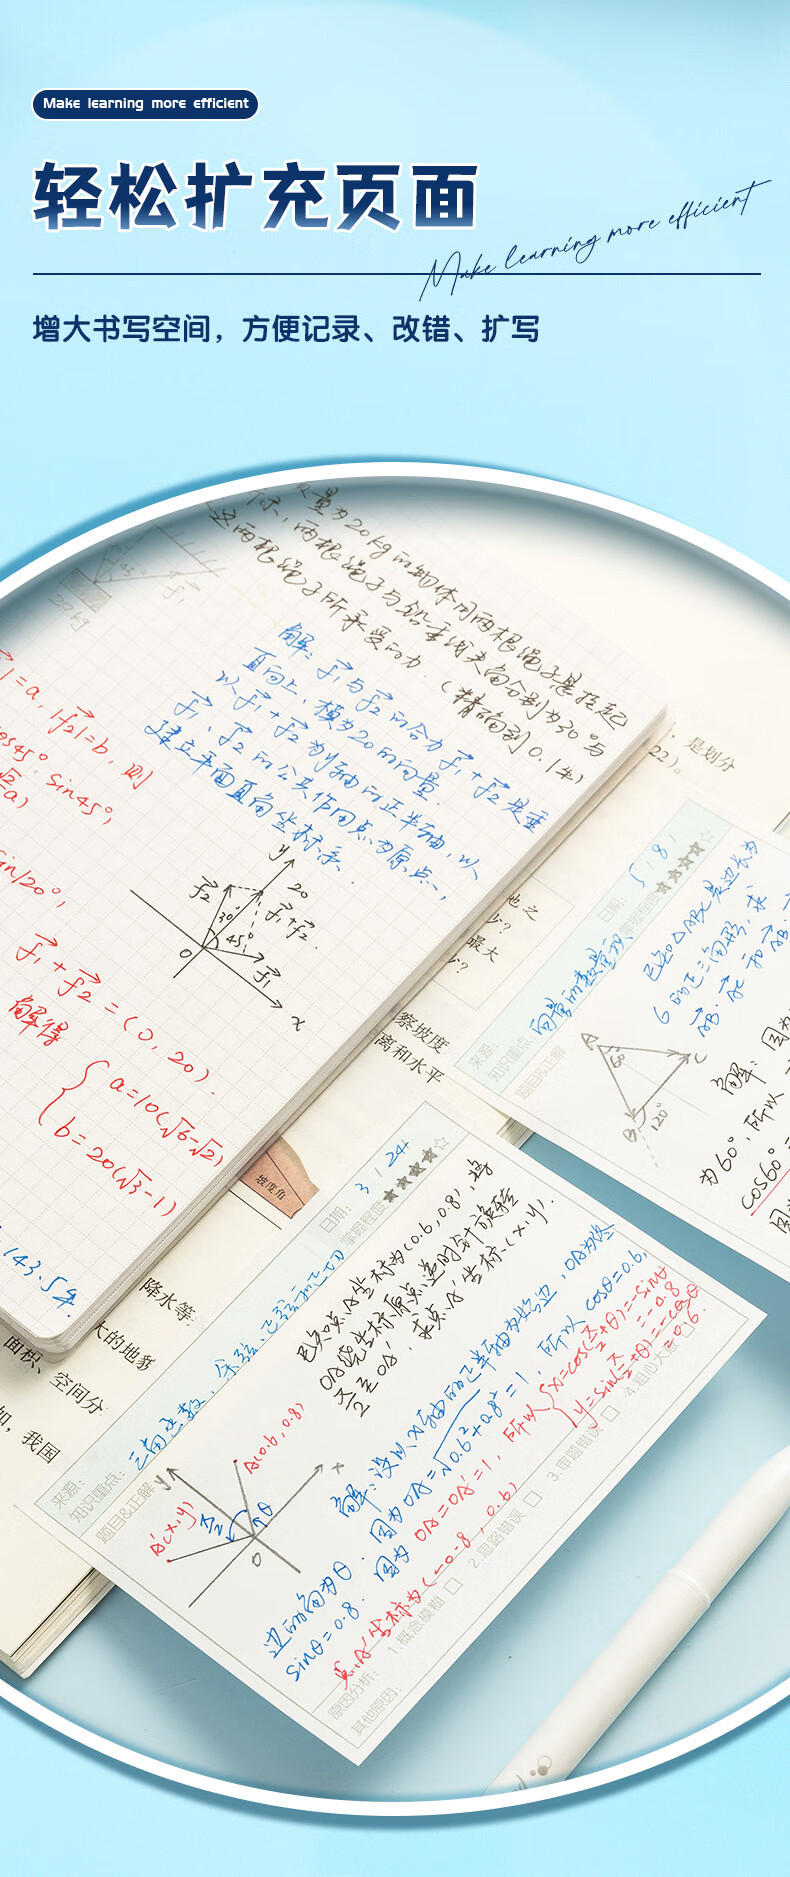 Make learning more efficient
轻松扩充页面
Make learning more efficient
增大书写空间，方便记录、改错、扩写
质量为20kg的物体用两根绳子悬挂起
两根绳子与铅垂线夹角分别为30°与
这两根绳子所承受的力.（精确到0.1牛）
45°
f₁
20kg
解：f₁与f₂的合力f₁+f₂是垂
直向上，模为20的向量.
以f₁+f₂为y轴的正半轴，以
f₁、f₂的公共作用点为原点，
建立平面直角坐标系.
|=a, |f₂|=b, 则
cos45°, sin45°,
sin120°,
y
20
f₂
30°
f₁+f₂.
45°
f₁
O
x
f₁+f₂=(0, 20).
解得
a=10(√6-√2)
b=20(√3-1)
143.5牛.
是划分
22)。
地之
少?
最大
?
察坡度
离和水平
坡度角
降水等;
大的地貌
面积、空间分
如，我国
日期： 5 / 8 /
掌握程度★★★★☆
来源：
知识重点：向量的数量积
题目&正解
已知△ABC是边长为
6的正三角形，求
AB·AC和AB·
A
60°
C
B
120°
解：因为
为60°,所以
cos60°=
日期： 3 / 24
掌握程度★★★★☆
来源：
知识重点：三角函数，余弦、正弦和正切
题目&正解
已知点A坐标为(0.6, 0.8),将
OA绕坐标原点逆时针旋转
π/2至OA',求点A'坐标(x, y).
y
A(0.6, 0.8)
x
A'(x, y)
π/2
θ
O
解：设以x轴的正半轴为始边，OA为终
边的角为θ.因为OA=√0.6²+0.8²=1,所以cosθ=0.6,
sinθ=0.8.因为OA=OA'=1,所以
x=cos(π/2+θ)=-sinθ
=-0.8
y=sin(π/2+θ)=cosθ
=0.6.
点A'坐标为(-0.8, 0.6)
原因分析： 1.概念模糊 □ 2.思路错误 □ 3.审题错误 □ 4.粗心大意 □
其他原因：